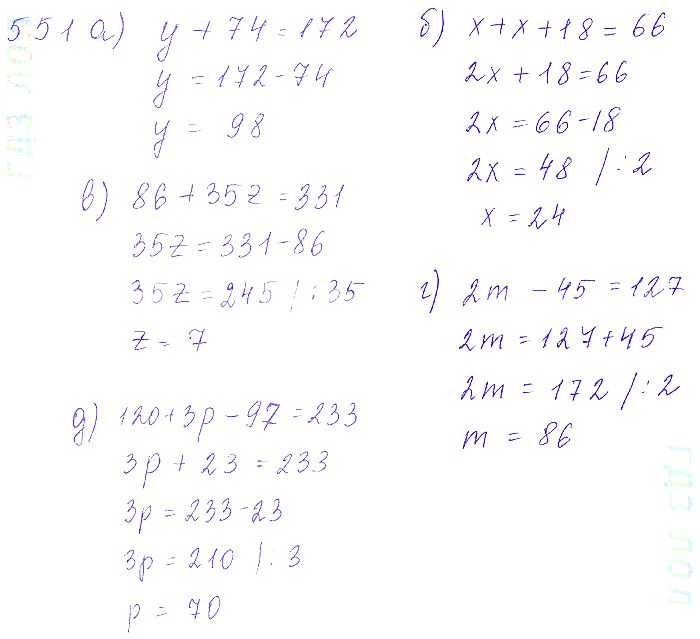 551 а) y + 74 = 172
y = 172 - 74
y = 98
б) x + x + 18 = 66
2x + 18 = 66
2x = 66 - 18
2x = 48 | : 2
x = 24
в) 86 + 35z = 331
35z = 331 - 86
35z = 245 | : 35
z = 7
г) 2m - 45 = 127
2m = 127 + 45
2m = 172 | : 2
m = 86
д) 120 + 3p - 97 = 233
3p + 23 = 233
3p = 233 - 23
3p = 210 | : 3
p = 70